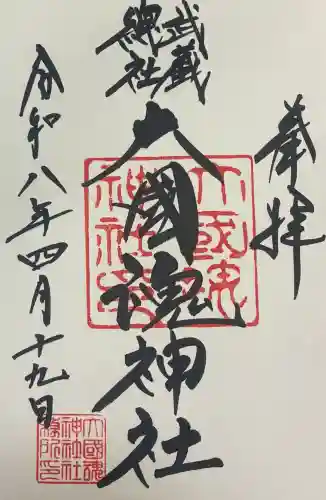 奉拝
武蔵
總社
大國魂神社
令和八年四月十九日
大國魂
神社印
大國魂
神社社
務所印